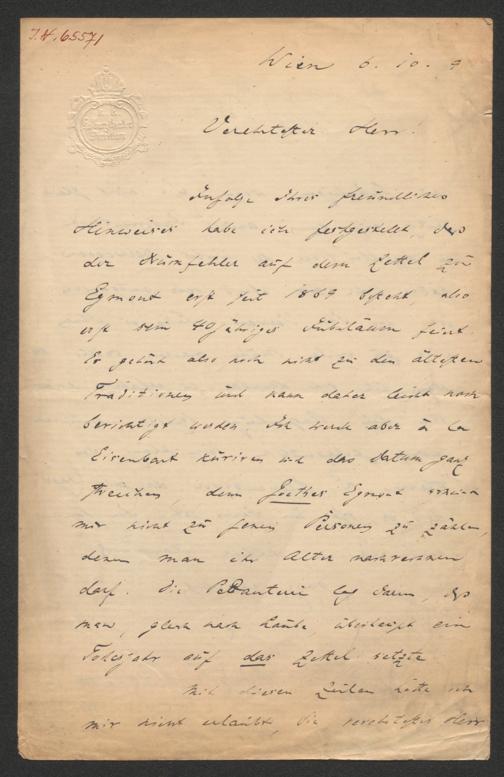 J.N. 65571
Wien 6. 10. 9
Verehrtester Herr!
Infolge Ihres freundlichen
Hinweises habe ich festgestellt, dass
der Druckfehler auf dem Zettel zu
Egmont erst seit 1869 besteht, also
erst sein 40jähriges Jubiläum feiert.
Er gehört also noch nicht zu den ältesten
Traditionen und kann daher leicht noch
berichtigt werden. Ich werde aber à la
Eisenbart kuriren und das Datum ganz
streichen, denn Goethes Egmont scheint
mir nicht zu jenen Personen zu zählen,
denen man ihr Alter nachrechnen
darf. Die Pedanterie lag darin, dass
man, gleich nach Laube, überhaupt ein
Todesjahr auf das Zettel setzte.
Mit diesen Zeilen hätte ich
mir nicht erlaubt, Sie verehrtester Herr